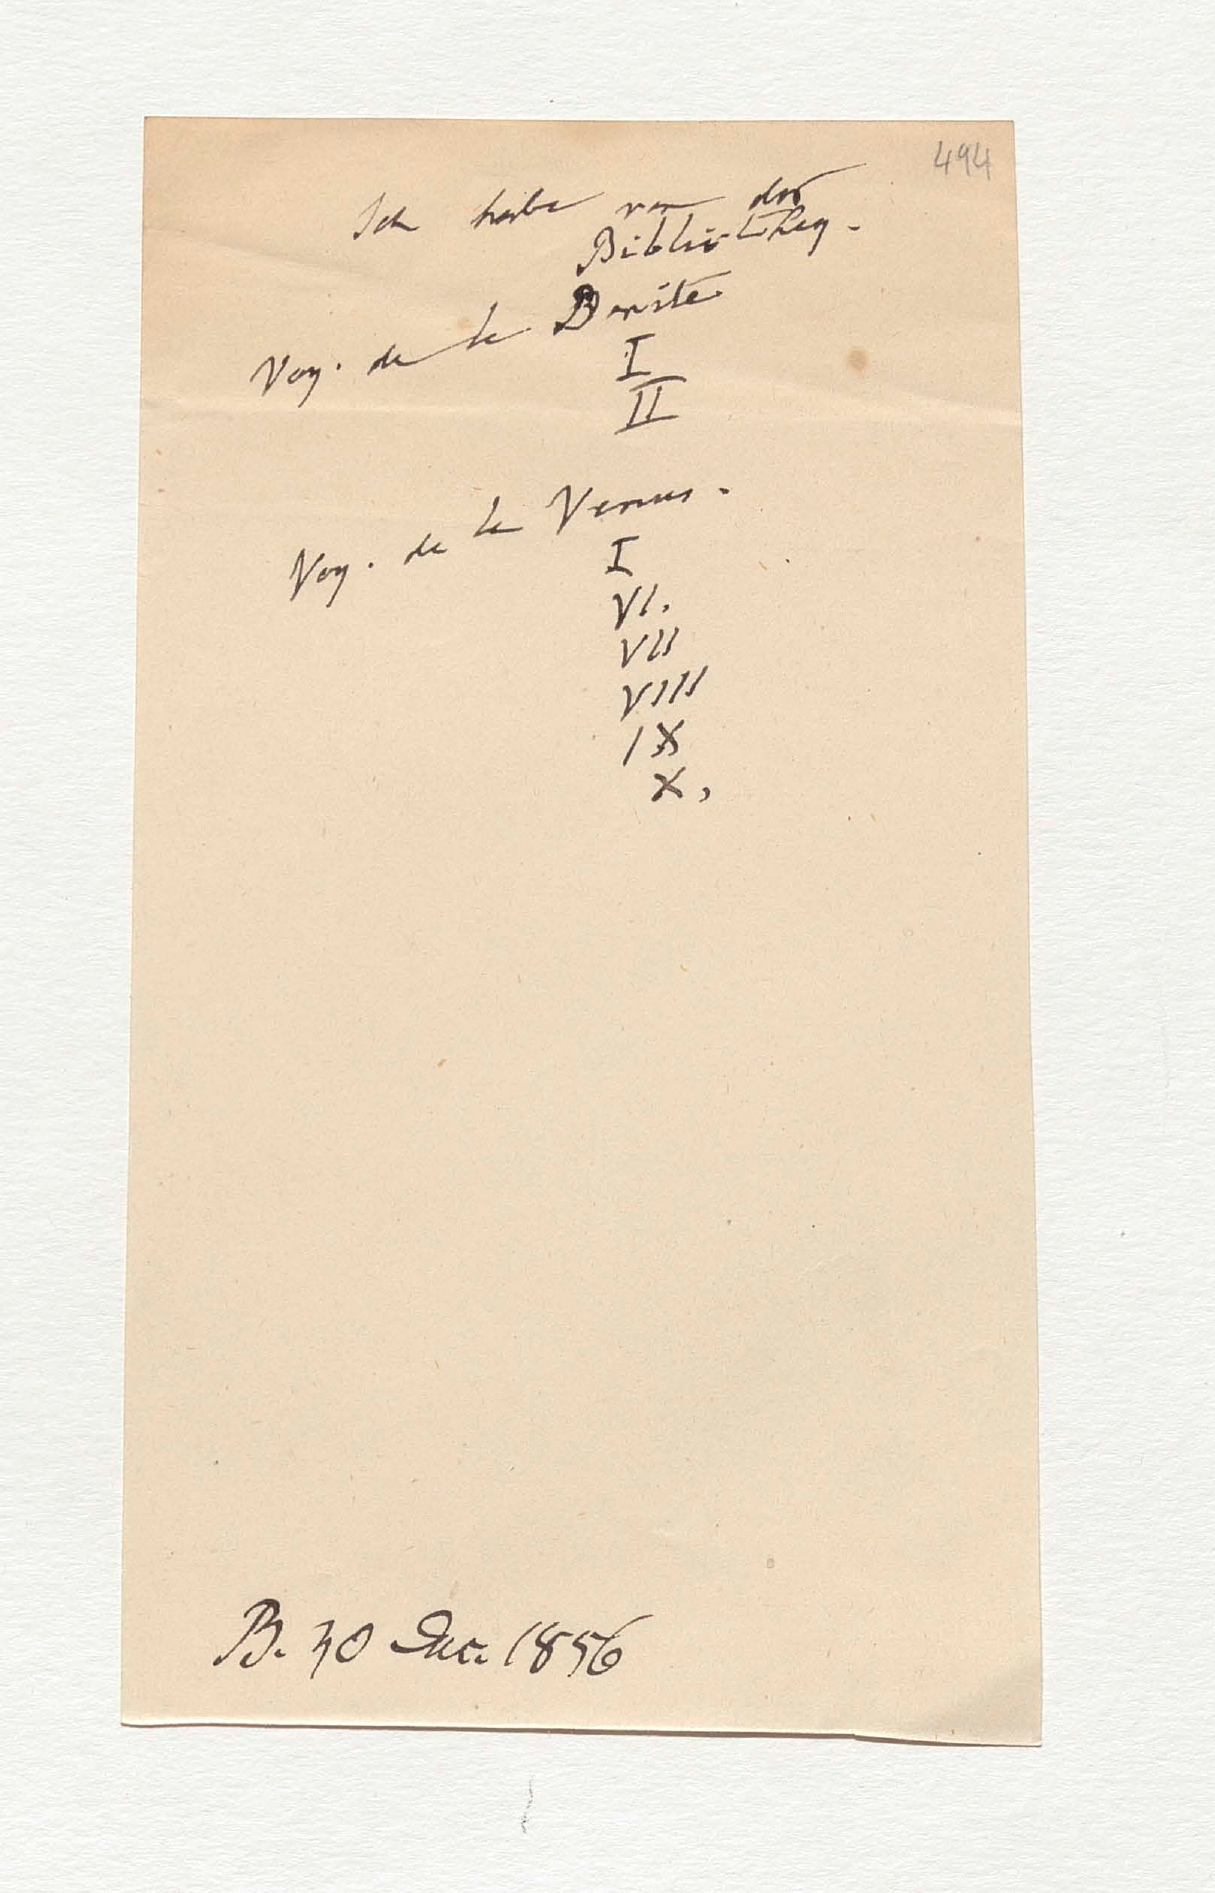 494
Ich habe von der
Bibliotheq.
Voy. de la Bonite
I
II
Voy. de la Venus.
I
VI.
VII
VIII
IX
X,
B. 30 Dec. 1856